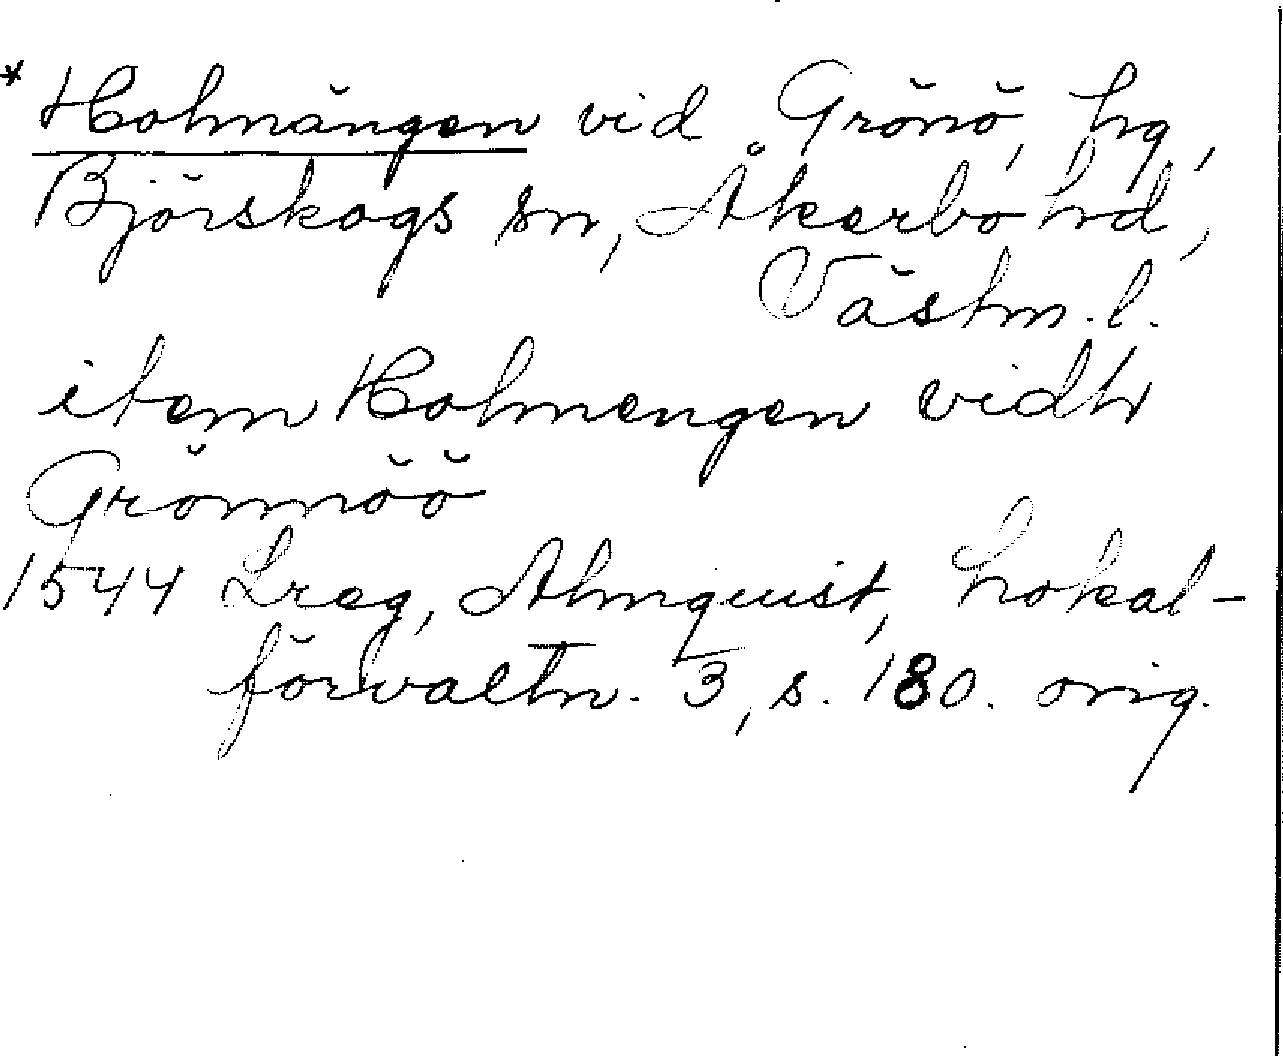 * Holmängen vid Grönö, hg,
Björskogs sn, Åkerbo hd,
Västm. l.
item Holmengen vidh
Grönnöö
1544 Lreg, Almquist, Lokal-
förvaltn. 3, s. 180. orig.